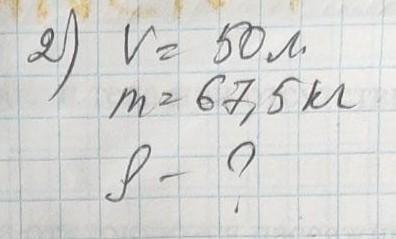 2) V = 50 л
m = 67,5 кг
ρ - ?